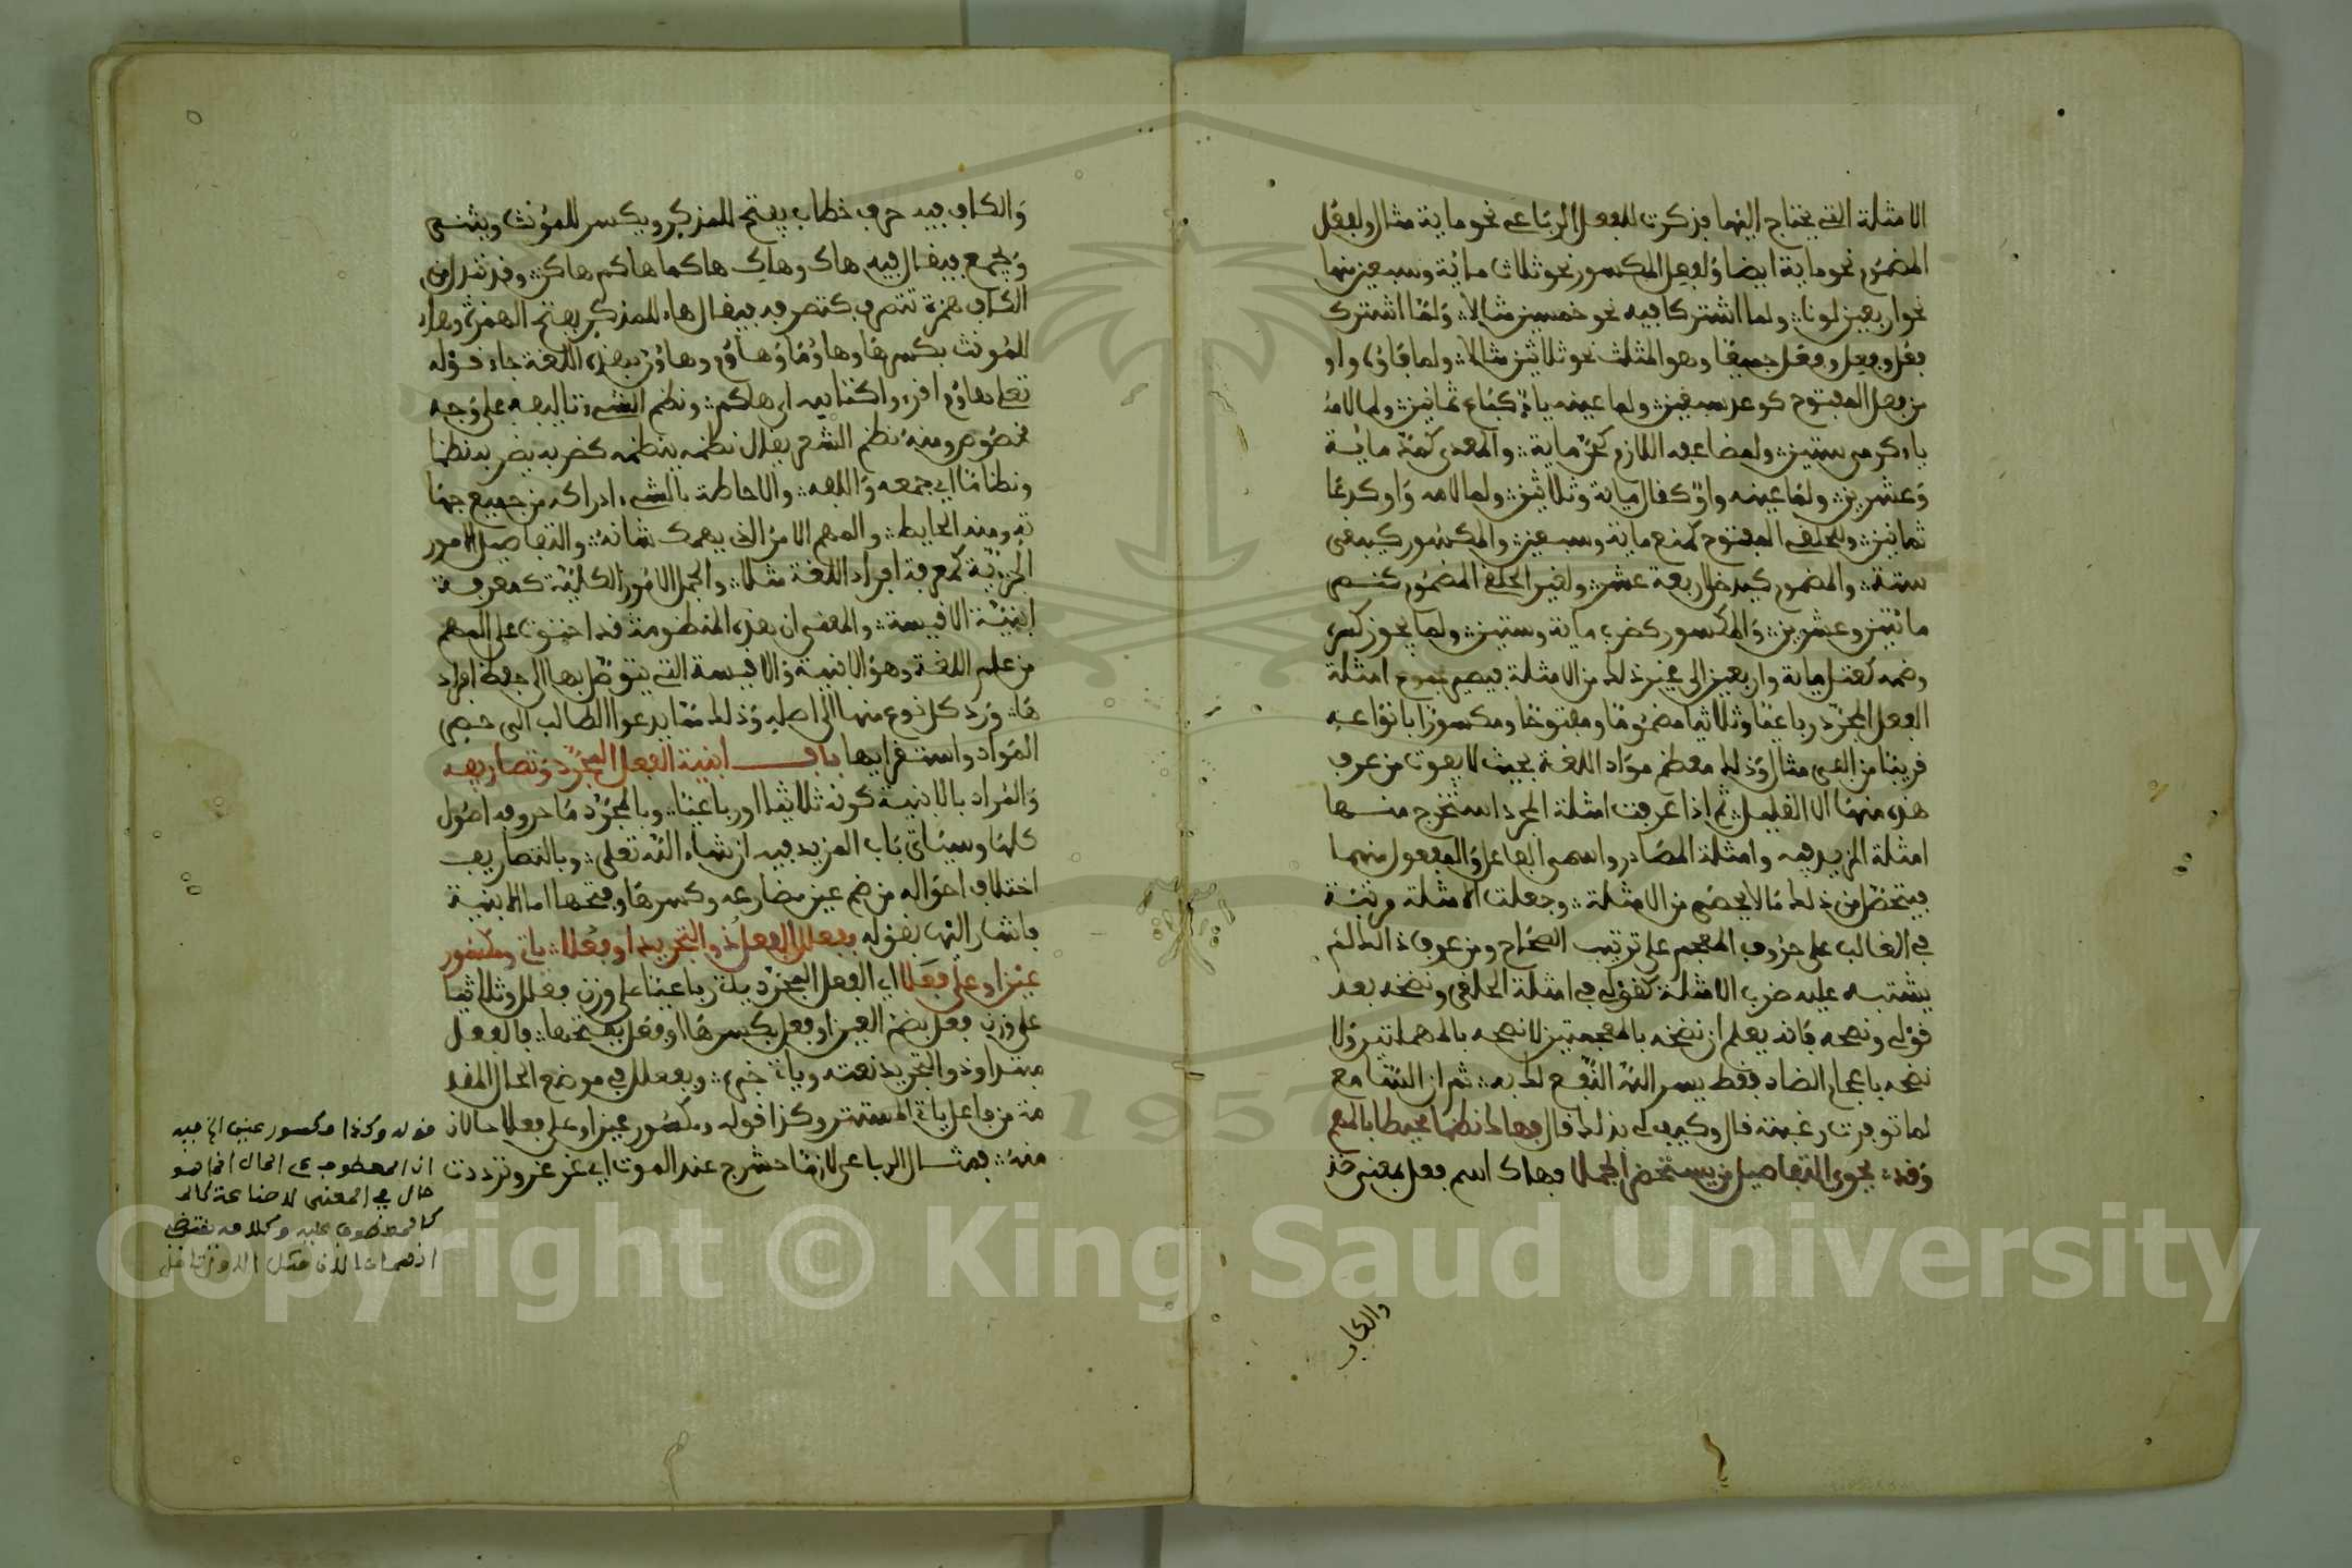 الامثلة التي يحتاج اليها فذكرت للفعل الرباعي نحو ماية مثال ولفعُل
المضموم نحو ماية ايضا ولفعِل المكسور نحو ثلاث مائة وسبعين منها
نحو اربعين لونا ولما اشتركا فيه نحو خمسين مثالا ولما اشترك
فعُل وفعِل وفعَل جميعا وهو المثلث نحو ثلاثين مثالا ولما فاؤه واو
من فعل المفتوح كوعد سبعين ولما عينه ياء كباع ثمانين ولما لامه
ياء كرمى ستين ولمضاعفه اللازم كحن ماية والمعدى كمد مائة
وعشرين ولما عينه واو كقال مياية وثلاثين ولما لامه واو كدعا
ثمانين ولحلقي المفتوح كمنع ماية وسبعين والمكسور كيبغي
ستة والمضموم كيدخل اربعة عشر ولغير الحلقي المضموم كنصر
مائتين وعشرين والمكسور كضرب ماية وستين ولما يجوز كسره
وضمه كعتل ماية واربعين الى غير ذلك من الامثلة فيصير مجموع امثلة
الفعل المجرد رباعيا وثلاثيا مضموما ومفتوحا ومكسورا بانواعه
قريبا من الفي مثال وذلك معظم مواد اللغة بحيث لا يفوت من عرف
هذه منها الا القليل ثم اذا عرفت امثلة المجرد استخرج منها
امثلة المزيد فيه وامثلة المصادر واسمي الفاعل والمفعول منهما
فيتحصل من ذلك ما لا يحصى من الامثلة وجعلت الامثلة مرتبة
في الغالب على حروف المعجم على ترتيب الصحاح ومن عرف ذلك لم
يشتبه عليه ضرب الامثلة كقولي في امثلة الحلقي ونضخه بعد
قولي ونصحه فانه يعلم ان نضخه بالمعجمتين لا نصحه بالمهملتين ولا
نضحه باعجام الضاد فقط يسر الله النفع لذلك به ثم ان السامع
لما توفرت رغبته قال وكيف لي بذلك قال فهاك نظما محيطا بالمهم
وقد يحوي التفاصيل من يستحضر الجملا فهاك اسم فعل بمعنى خذ
والكاف
والكاف فيه حرف خطاب يفتح للمذكر ويكسر للمؤنث ويثنى
ويجمع فيقال فيه هاك وهاكِ هاكما هاكم هاكن وقد تبدل من
الكاف همزة تتصرف كتصرفه فيقال هاء للمذكر بفتح الهمزة وهاء
للمؤنث بكسرها وهاؤما وهاؤم وهاؤن وبهذه اللغة جاء قوله
تعلى هاؤم اقرءوا كتابيه اي هاكم ونظم الشيء تاليفه على وجه
مخصوص ومنه نظم الشعر يقال نظمه ينظمه كضربه يضربه نظما
ونظاما اي جمعه والفه والاحاطة بالشيء ادراكه من جميع جها
ته ومنه الحايط والمهم الامر الذي يهمك شانه والتفاصيل الامور
الجزئية كمعرفة افراد اللغة مثلا والجمل الامور الكلية كمعرفة
ابنية الاقيسة والمعنى ان هذه المنظومة قد احتوت على المهم
من علم اللغة وهو الابنية والاقيسة التي يتوصل بها الى حفظ افراد
ها ورد كل نوع منها الى اصله وذلك مما يدعوا الطالب الى حصر
المواد واستقرايها باب ابنية الفعل المجرد وتصاريفه
والمراد بالابنية كونه ثلاثيا او رباعيا وبالمجرد ما حروفه اصول
كلها وسياتي باب المزيد فيه ان شاء الله تعلى وبالتصاريف
اختلاف احواله من ضم عين مضارعه وكسرها وفتحها اما الابنية
فاشار اليها بقوله بفعلل الفعل ذو التجريد او فعلا ياتي ومكسور
عين او على فعلا اي الفعل المجرد ياتي رباعيا على وزن فعلل وثلاثيا
على وزن فعل بضم العين او فعل بكسرها او فعل بفتحها فالفعل
مبتدا وذو التجريد نعته وياتي خبره وبفعلل في موضع الحال المقد
مة من فاعل ياتي المستتر وكذا قوله ومكسور عين او على فعلا حالان
منه فمثال الرباعي لازما حشرج عند الموت اي غرغر وترددت
قوله وكذا مكسور عين الخ فيه
ان المعطوف على الحال انما هو
حال في المعنى لا صناعة